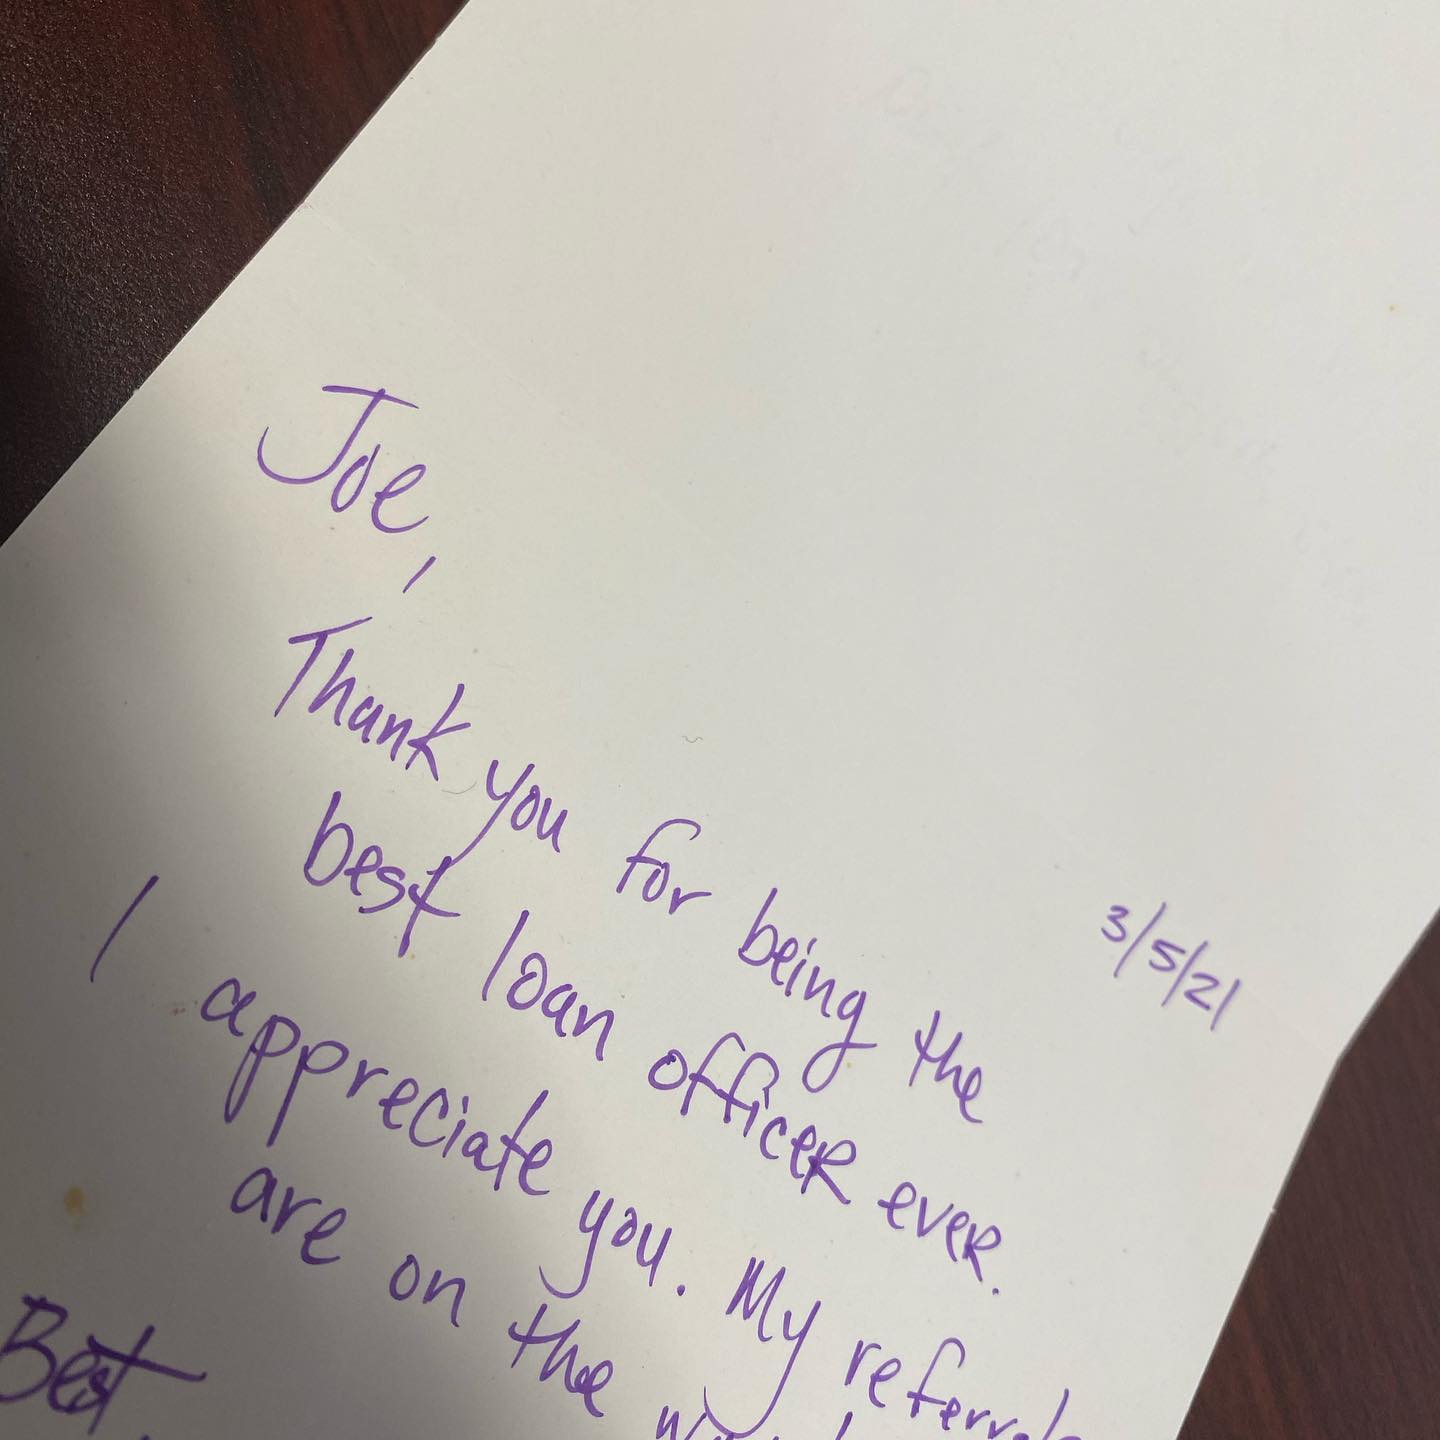 3/5/21
Joe,
Thank you for being the
best loan officer ever.
I appreciate you. My referrals
are on the
Best